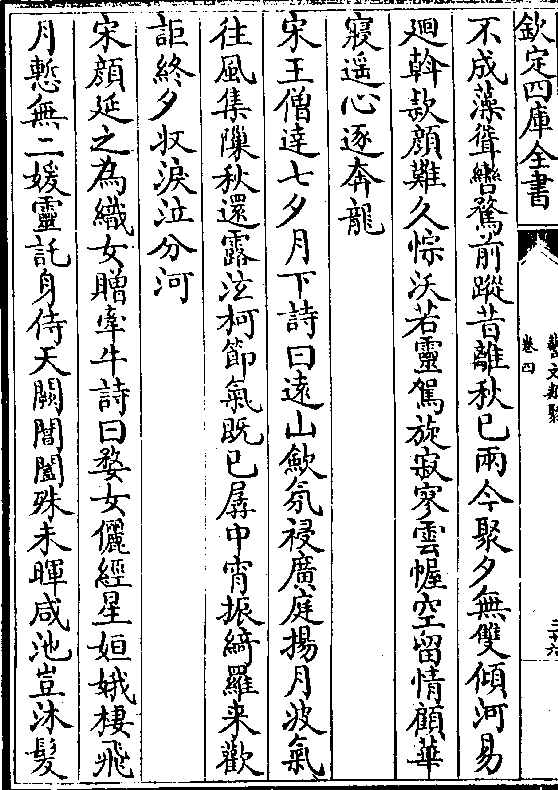 欽定四庫全書
藝文類聚
卷四
二十六
不成藻聳轡騖前蹤昔離秋已兩今聚夕無雙傾河易
廻斡款顔難久悰沃若靈駕旋寂寥雲幄空留情顧華
寢遥心逐奔龍
宋王僧達七夕月下詩曰遠山歛氛祲廣庭揚月波氣
往風集隟秋還露泫柯節氣既已孱中宵振綺羅来歡
詎終夕収淚泣分河
宋顔延之為織女贈牽牛詩曰婺女儷經星姮娥棲飛
月慙無二媛靈託身侍天闕閶闔殊未暉咸池豈沐髮